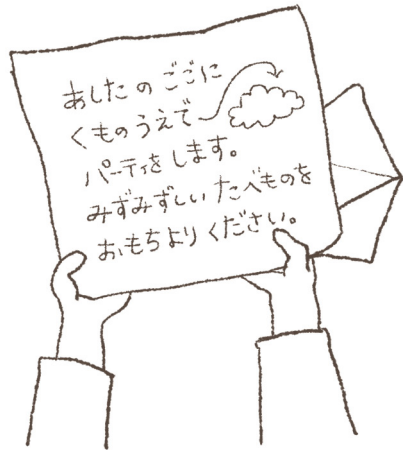 あしたの ごごに
くものうえで
パーティを します。
みずみずしい たべものを
おもちより ください。